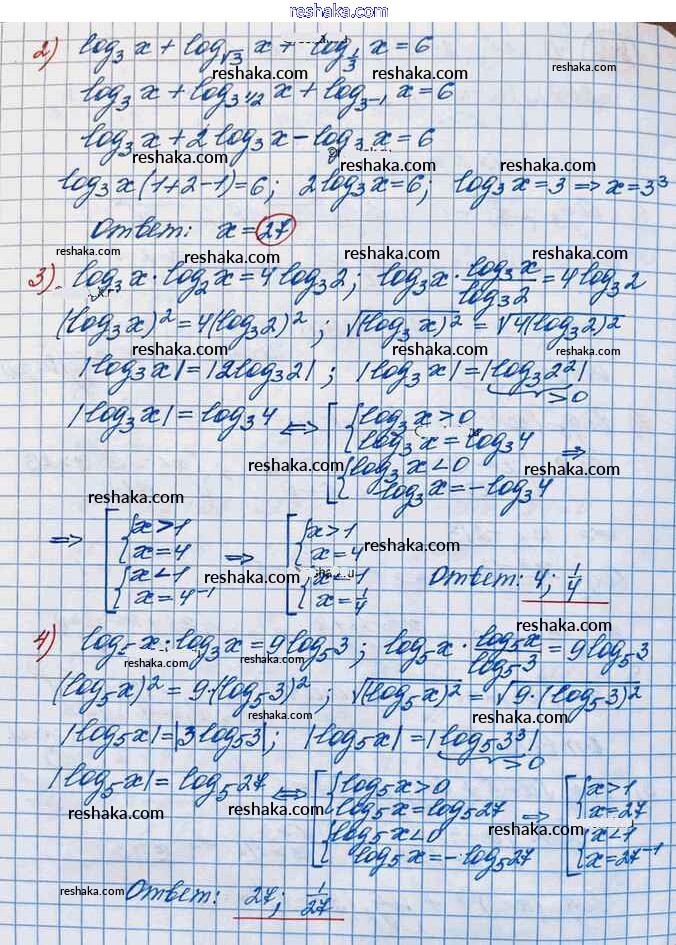 reshaka.com
2) log₃ x + log_√3 x + log_1/3 x = 6
reshaka.com reshaka.com reshaka.com
log₃ x + log_3^1/2 x + log_3⁻¹ x = 6
log₃ x + 2 log₃ x - log₃ x = 6
reshaka.com reshaka.com reshaka.com
log₃ x (1+2-1) = 6; 2 log₃ x = 6; log₃ x = 3 ⇒ x = 3³
Ответ: x = 27
reshaka.com reshaka.com reshaka.com reshaka.com
3) log₃ x · log₂ x = 4 log₃ 2; log₃ x · log₃ x / log₃ 2 = 4 log₃ 2
(log₃ x)² = 4(log₃ 2)²; √(log₃ x)² = √4(log₃ 2)²
reshaka.com reshaka.com reshaka.com
|log₃ x| = |2 log₃ 2|; |log₃ x| = |log₃ 2²|
> 0
|log₃ x| = log₃ 4 ⇔ [ { log₃ x > 0
log₃ x = log₃ 4
reshaka.com reshaka.com reshaka.com
{ log₃ x < 0 ⇒
log₃ x = - log₃ 4
reshaka.com
⇒ [ { x > 1 ⇒ [ { x > 1
x = 4 x = 4
reshaka.com
{ x < 1 { x < 1
x = 4⁻¹ x = 1/4
reshaka.com reshaka.com
Ответ: 4; 1/4
reshaka.com
4) log₅ x · log₃ x = 9 log₅ 3; log₅ x · log₅ x / log₅ 3 = 9 log₅ 3
reshaka.com reshaka.com reshaka.com
(log₅ x)² = 9·(log₅ 3)²; √(log₅ x)² = √9·(log₅ 3)²
reshaka.com reshaka.com
|log₅ x| = |3 log₅ 3|; |log₅ x| = |log₅ 3³|
> 0
|log₅ x| = log₅ 27 ⇔ [ { log₅ x > 0 ⇒ [ { x > 1
log₅ x = log₅ 27 x = 27
reshaka.com reshaka.com reshaka.com
{ log₅ x < 0 { x < 1
log₅ x = - log₅ 27 x = 27⁻¹
reshaka.com reshaka.com reshaka.com
Ответ: 27; 1/27